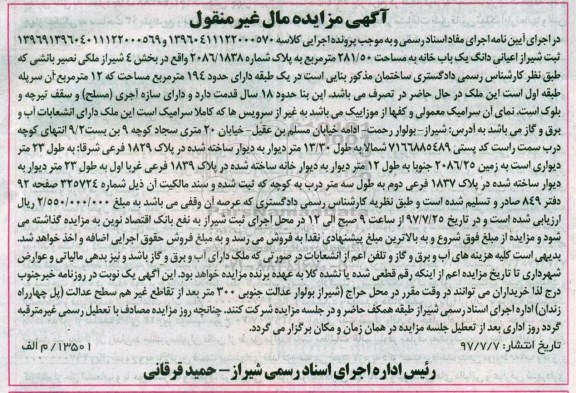 آگهی مزایده مال غیر منقول
در اجرای آیین نامه اجرای مفاد اسناد رسمی و به موجب پرونده اجرایی کلاسه ۱۳۹۶۰۴۱۱۱۲۲۰۰۰۵۷۰ و ۱۳۹۶۹۱۳۹۶۰۴۰۱۱۱۲۲۰۰۰۵۶۹
ثبت شیراز اعیانی دانگ یک باب خانه به مساحت ۲۸۱/۵۰ مترمربع به پلاک شماره ۲۰۸۶/۱۸۳۸ واقع در بخش ۴ شیراز ملکی نصیر باتشی که
طبق نظر کارشناس رسمی دادگستری ساختمان مذکور بنایی است در یک طبقه دارای حدود ۱۹۴ مترمربع مساحت که ۱۲ مترمربع آن سرپله
طبقه اول است این ملک در حال حاضر در تصرف می باشد. این بنا حدود ۱۸ سال قدمت دارد و دارای سازه آجری (مسلح) و سقف تیرچه و
بلوک است. نمای آن سرامیک معمولی و کفها از موزاییک می باشد به غیر از سرویس ها که کاملا سرامیک است این ملک دارای انشعابات آب و
برق و گاز می باشد به آدرس: شیراز– بولوار رحمت– ادامه خیابان مسلم بن عقیل– خیابان ۲۰ متری سجاد کوچه ۹ بن بست ۹/۲ انتهای کوچه
درب سمت راست کد پستی ۷۱۶۶۸۸۵۴۸۹ شمالا به طول ۱۳/۳۰ متر دیوار به دیوار ساخته شده در پلاک ۱۸۲۹ فرعی شرقا: به طول ۲۳ متر
دیواری است به زمین ۲۰۸۶/۲۵ جنوبا به طول ۱۲ متر دیوار به دیوار خانه ساخته شده در پلاک ۱۸۳۹ فرعی غربا اول به طول ۲۳ متر دیوار به دیوار
ساخته شده در پلاک ۱۸۳۷ فرعی دوم به طول سه متر درب به کوچه که ثبت شده و سند مالکیت آن ذیل شماره ۳۲۵۷۲۴ صفحه ۹۲
دفتر ۸۴۹ صادر و تسلیم شده است و طبق نظریه کارشناس رسمی دادگستری که عرصه آن وقفی می باشد به مبلغ ۲/۵۵۰/۰۰۰/۰۰۰ ریال
ارزیابی شده است و در تاریخ ۹۷/۷/۲۵ از ساعت ۹ صبح الی ۱۲ در محل اجرای ثبت شیراز به نفع بانک اقتصاد نوین به مزایده گذاشته می
شود و مزایده از مبلغ فوق شروع و به بالاترین مبلغ پیشنهادی نقدا به فروش می رسد و به مبلغ فروش حقوق اجرایی اضافه و اخذ خواهد شد.
بدیهی است کلیه هزینه های آب و برق و گاز و تلفن اعم از انشعابات در صورتی که ملک دارای آب و برق و گاز باشد و نیز بدهی مالیاتی و عوارض
شهرداری تا تاریخ مزایده اعم از اینکه رقم قطعی شده یا نشده کلا به عهده برنده مزایده خواهد بود. این آگهی یک نوبت در روزنامه خبرجنوب
درج لذا خریداران می توانند در وقت مقرر در محل حراج (شیراز بولوار عدالت جنوبی ۳۰۰ متر بعد از تقاطع غیر هم سطح عدالت (پل چهارراه
زندان) اداره اجرای اسناد رسمی شیراز طبقه همکف حاضر و در جلسه مزایده شرکت کنند. چنانچه روز مزایده مصادف با تعطیل رسمی غیرمترقبه
گردد روز اداری بعد از تعطیل جلسه مزایده در همان زمان و مکان برگزار می گردد.
تاریخ انتشار: ۹۷/۷/۷
۱۳۵۰۱/ م الف
رئیس اداره اجرای اسناد رسمی شیراز– حمید قرقانی